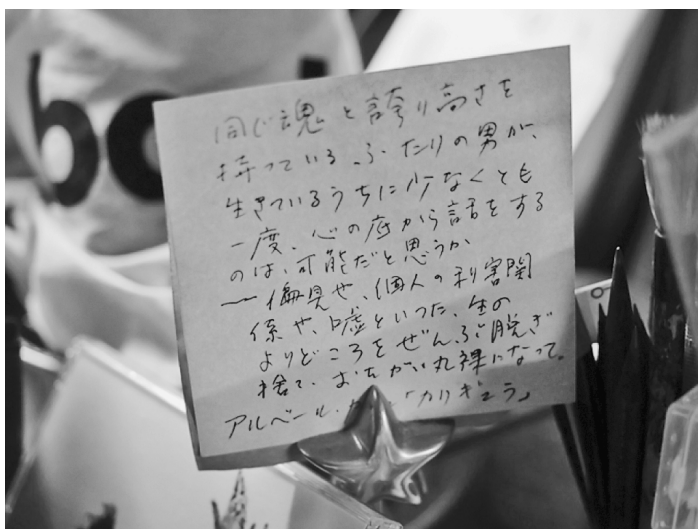 同じ魂と誇り高さを
持っているふたりの男が、
生きているうちに少なくとも
一度、心の底から話をする
のは、可能だと思うか
― 偏見や、個人の利害関
係や、嘘といった、生の
よりどころをぜんぶ脱ぎ
捨て、おたがい丸裸になって。
アルベール・ 「カリギュラ」